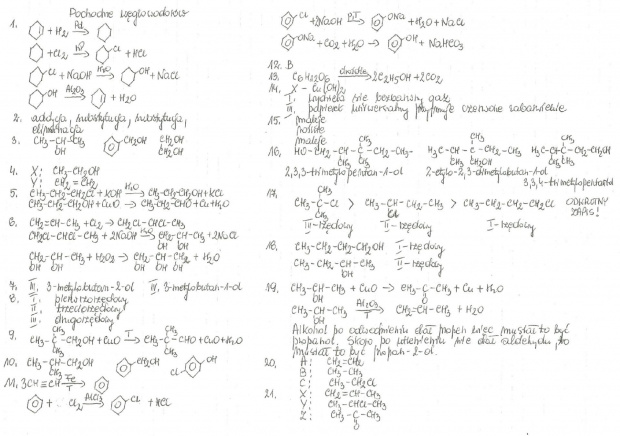 Pochodne węglowodorów
1.
+ H₂ Pd
+ Cl₂ hν Cl + HCl
Cl + NaOH H₂O OH + NaCl
OH Al₂O₃ + H₂O
2. addycja, substytucja, substytucja,
eliminacja
3. CH₃-CH-CH₃ OH CH₂OH CH₂OH CH₂OH
4. X: CH₃-CH₂OH
Y: CH₂=CH₂
5. CH₃-CH₂-CH₂Cl + KOH H₂O CH₃-CH₂-CH₂OH + KCl
CH₃-CH₂-CH₂OH + CuO → CH₃-CH₂-CHO + Cu + H₂O
6. CH₂=CH-CH₃ + Cl₂ → CH₂Cl-CHCl-CH₃
CH₂Cl-CHCl-CH₃ + 2NaOH H₂O CH₂-CH-CH₃ + 2NaCl
OH OH
CH₂-CH-CH₃ + H₂O₂ → CH₂-CH-CH₂ + H₂O
OH OH OH OH
7. III, 3-metylobutan-2-ol IV, 3-metylobutan-1-ol
8. I, pierwszorzędowy
II, trzeciorzędowy
III, drugorzędowy
9. CH₃-C-CH₂OH + CuO T CH₃-C-CHO + Cu + H₂O
CH₃ CH₃ CH₃ CH₃
10. CH₃-CH-CH₂OH CH₃ CH₂OH OH Cl
11. 3CH≡CH Fe T
+ Cl₂ AlCl₃ Cl + HCl
Cl + 2NaOH p,T ONa + H₂O + NaCl
ONa + CO₂ + H₂O → OH + NaHCO₃
12. B
13. C₆H₁₂O₆ drożdże 2C₂H₅OH + 2CO₂
14. X - Cu(OH)₂
I, wydziela się bezbarwny gaz
II, papierek uniwersalny przyjmuje czerwone zabarwienie
15. maleje
rośnie
maleje
16. HO-CH₂-CH-C-CH₂-CH₃
CH₃ CH₃ CH₃
2,3,3-trimetylopentan-1-ol
2-etylo-2,3-dimetylobutan-1-ol
3,3,4-trimetylopentanol
17. CH₃-C-Cl > CH₃-CH-CH₂-CH₃ > CH₃-CH₂-CH₂-CH₂Cl ODWROTNY ZNAG!
CH₃ CH₃ Cl
III-rzędowy II-rzędowy I-rzędowy
18. CH₃-CH₂-CH₂-CH₂OH I-rzędowy
CH₃-CH₂-CH-CH₃ II-rzędowy
OH
19. CH₃-CH-CH₃ + CuO → CH₃-C-CH₃ + Cu + H₂O
OH O
CH₃-CH-CH₃ Al₂O₃ T CH₂=CH-CH₃ + H₂O
OH
Alkohol po odwodnieniu dał propen więc musiał to być
propanol. Skoro po utlenieniu nie dał aldehydu, to
musiał to być propan-2-ol.
20. A: CH₂=CH₂
B: CH₃-CH₃
C: CH₃-CH₂Cl
21. X: CH₂=CH-CH₃
Y: CH₃-CHCl-CH₃
Z: CH₃-C-CH₃
O